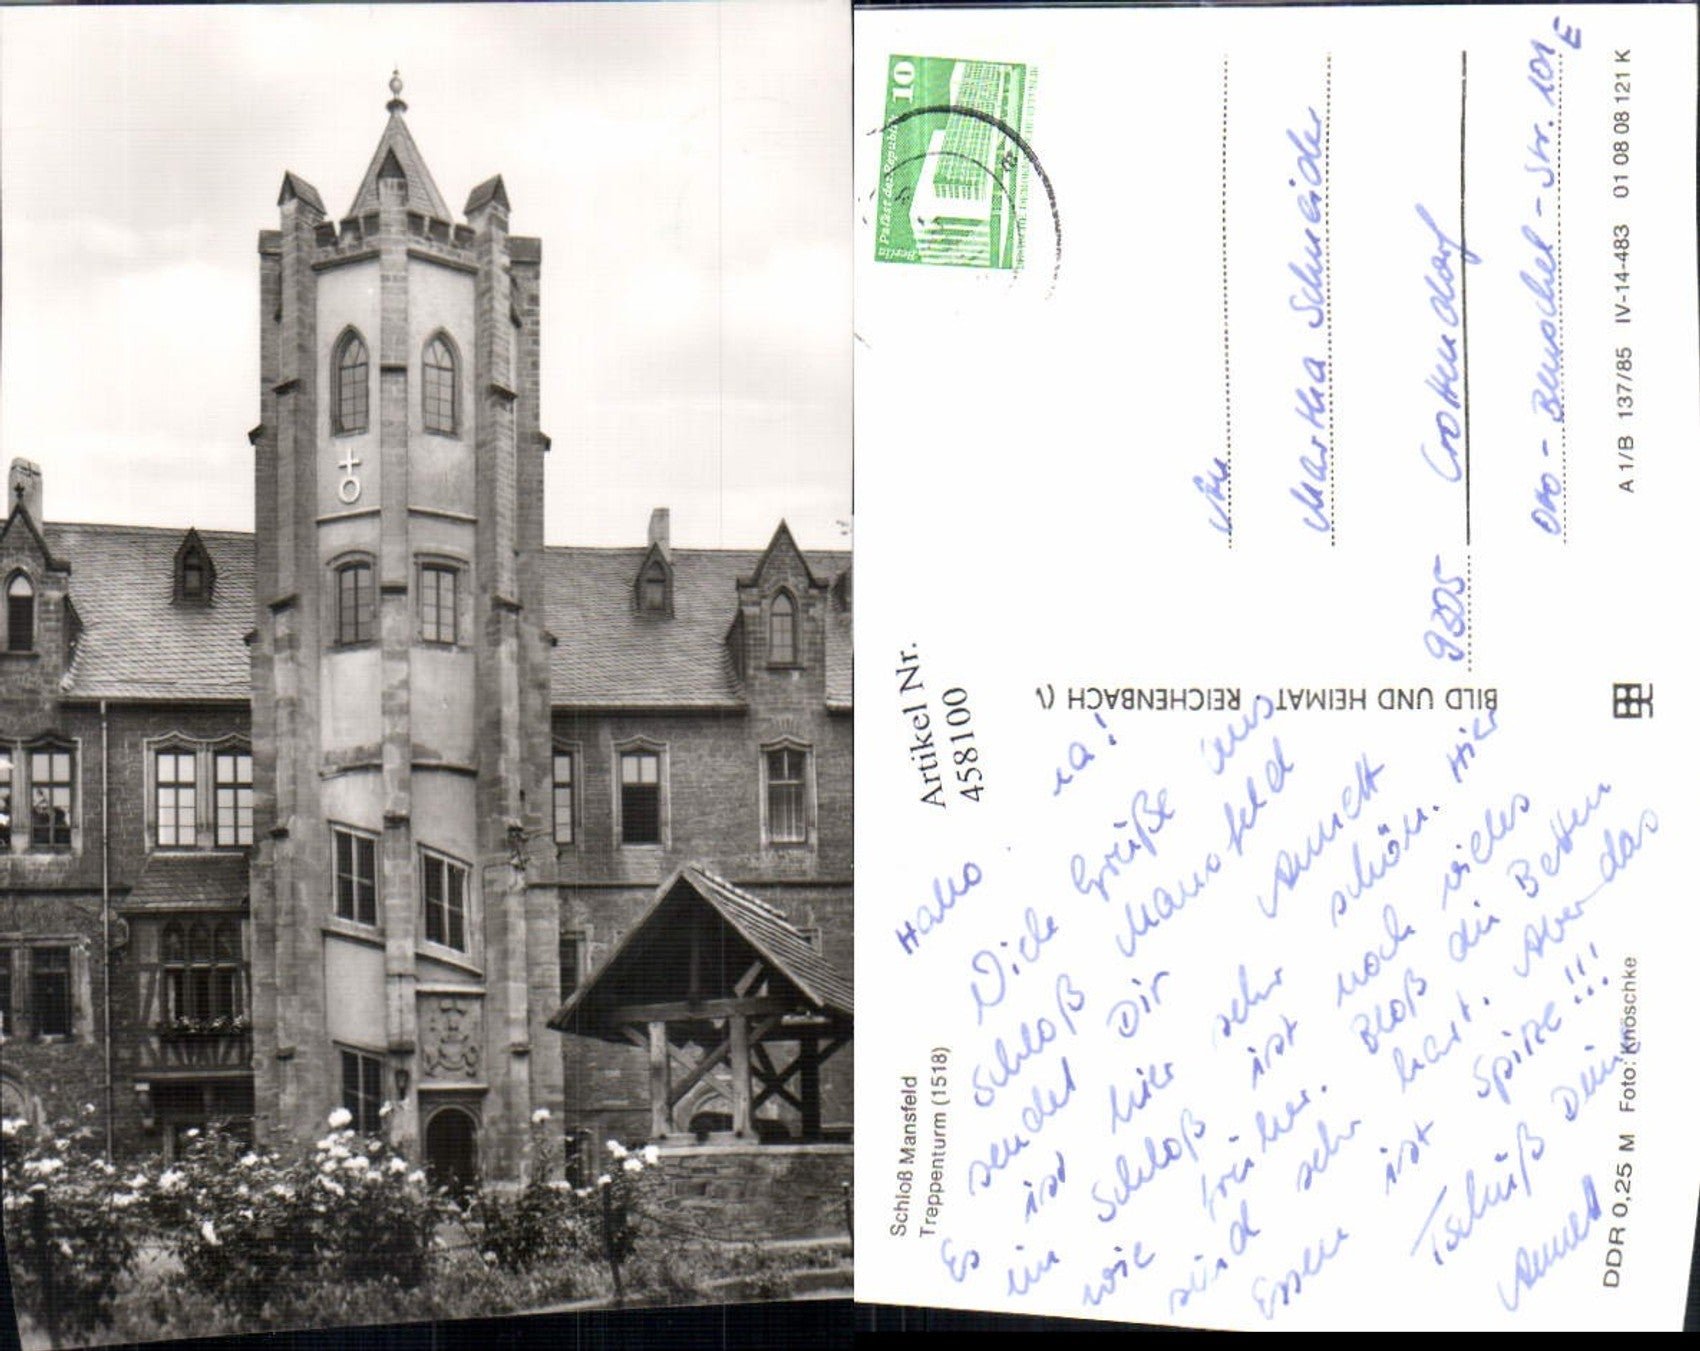 10
Berlin Palast der Republik
Artikel Nr.
4581 00
Schloß Mansfeld
Treppenturm (1518)
Hallo
Viele Grüße aus
Schloß Mansfeld
sendet Dir Annett
Es ist hier sehr schön. Hier
im Schloß ist noch vieles
wie früher. Bloß die Betten
sind sehr hart. Aber das
Essen ist Spitze!!!
Tschüß Deine
Annett
An
Martha Schneider
9305 Crottendorf
Otto-Benschel-Str. 101 E
BILD UND HEIMAT REICHENBACH (V
A 1/B 137/85 IV-14-483 01 08 08 121 K
DDR 0,25 M Foto: Knöschke